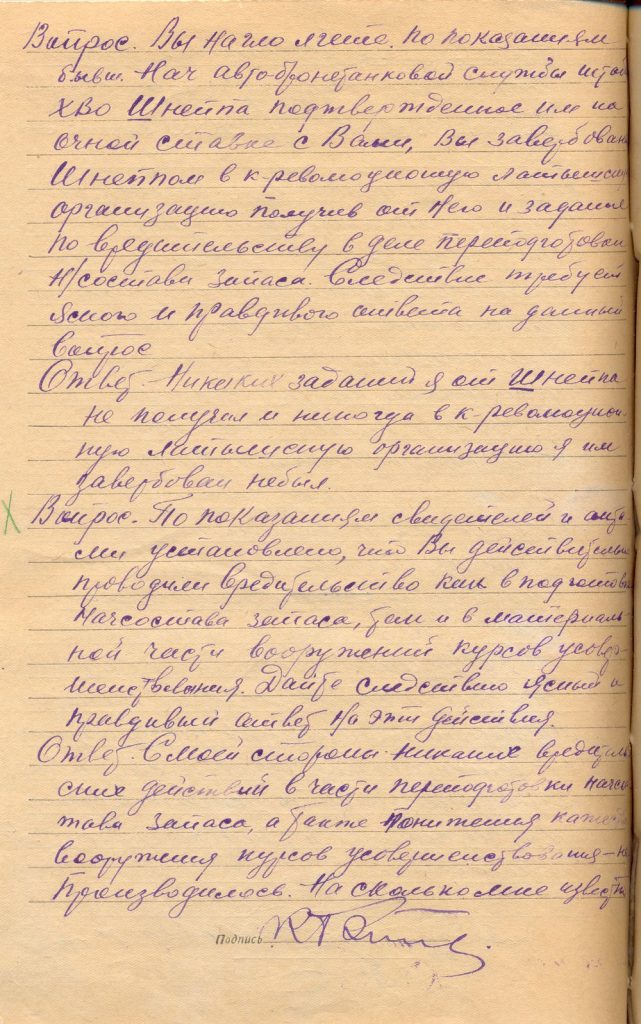 Вопрос. Вы нагло лжете. По показаниям
бывш. Нач автобронетанковой службы штаба
ХВО Шнейпа подтвержденное им на
очной ставке с Вами, Вы завербованы
Шнейпом в к-революционную латышскую
организацию получив от него и задания
по вредительству в деле переподготовки
н/состава запаса. Следствие требует
ясного и правдивого ответа на данный
вопрос
Ответ. Никаких заданий я от Шнейпа
не получал и никогда в к-революцион-
ную латышскую организацию я им
завербован небыл.
Вопрос. По показаниям свидетелей и акта
ми установлено, что Вы действительно
проводили вредительство как в подготовке
Начсостава запаса, так и в материаль-
ной части вооружений курсов усовер-
шенствования. Дайте следствию ясный и
правдивый ответ на эти действия.
Ответ. С моей стороны никаких вредитель
ских действий в части переподготовки начсос
тава запаса, а также понижения качества
вооружения курсов усовершенствования - не
производилось. На сколько мне известно
Подпись